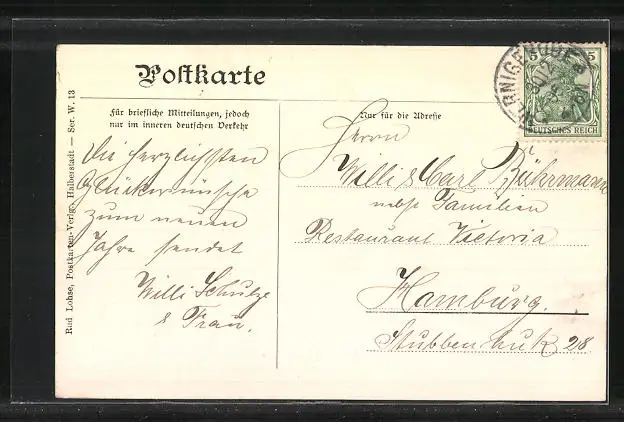 Postkarte
Für briefliche Mitteilungen, jedoch
nur im inneren deutschen Verkehr
Nur für die Adresse
Die herzlichsten
Glückwünsche
zum neuen
Jahre sendet
Willi Schulze
& Frau.
Herrn
Willi & Carl Bührmann
nebst Familien
Restaurant Victoria
Hamburg.
Stubbenhuk 28
Rud Lohse, Postkarten-Verlag, Halberstadt — Ser. W. 13
5 5
DEUTSCHES REICH